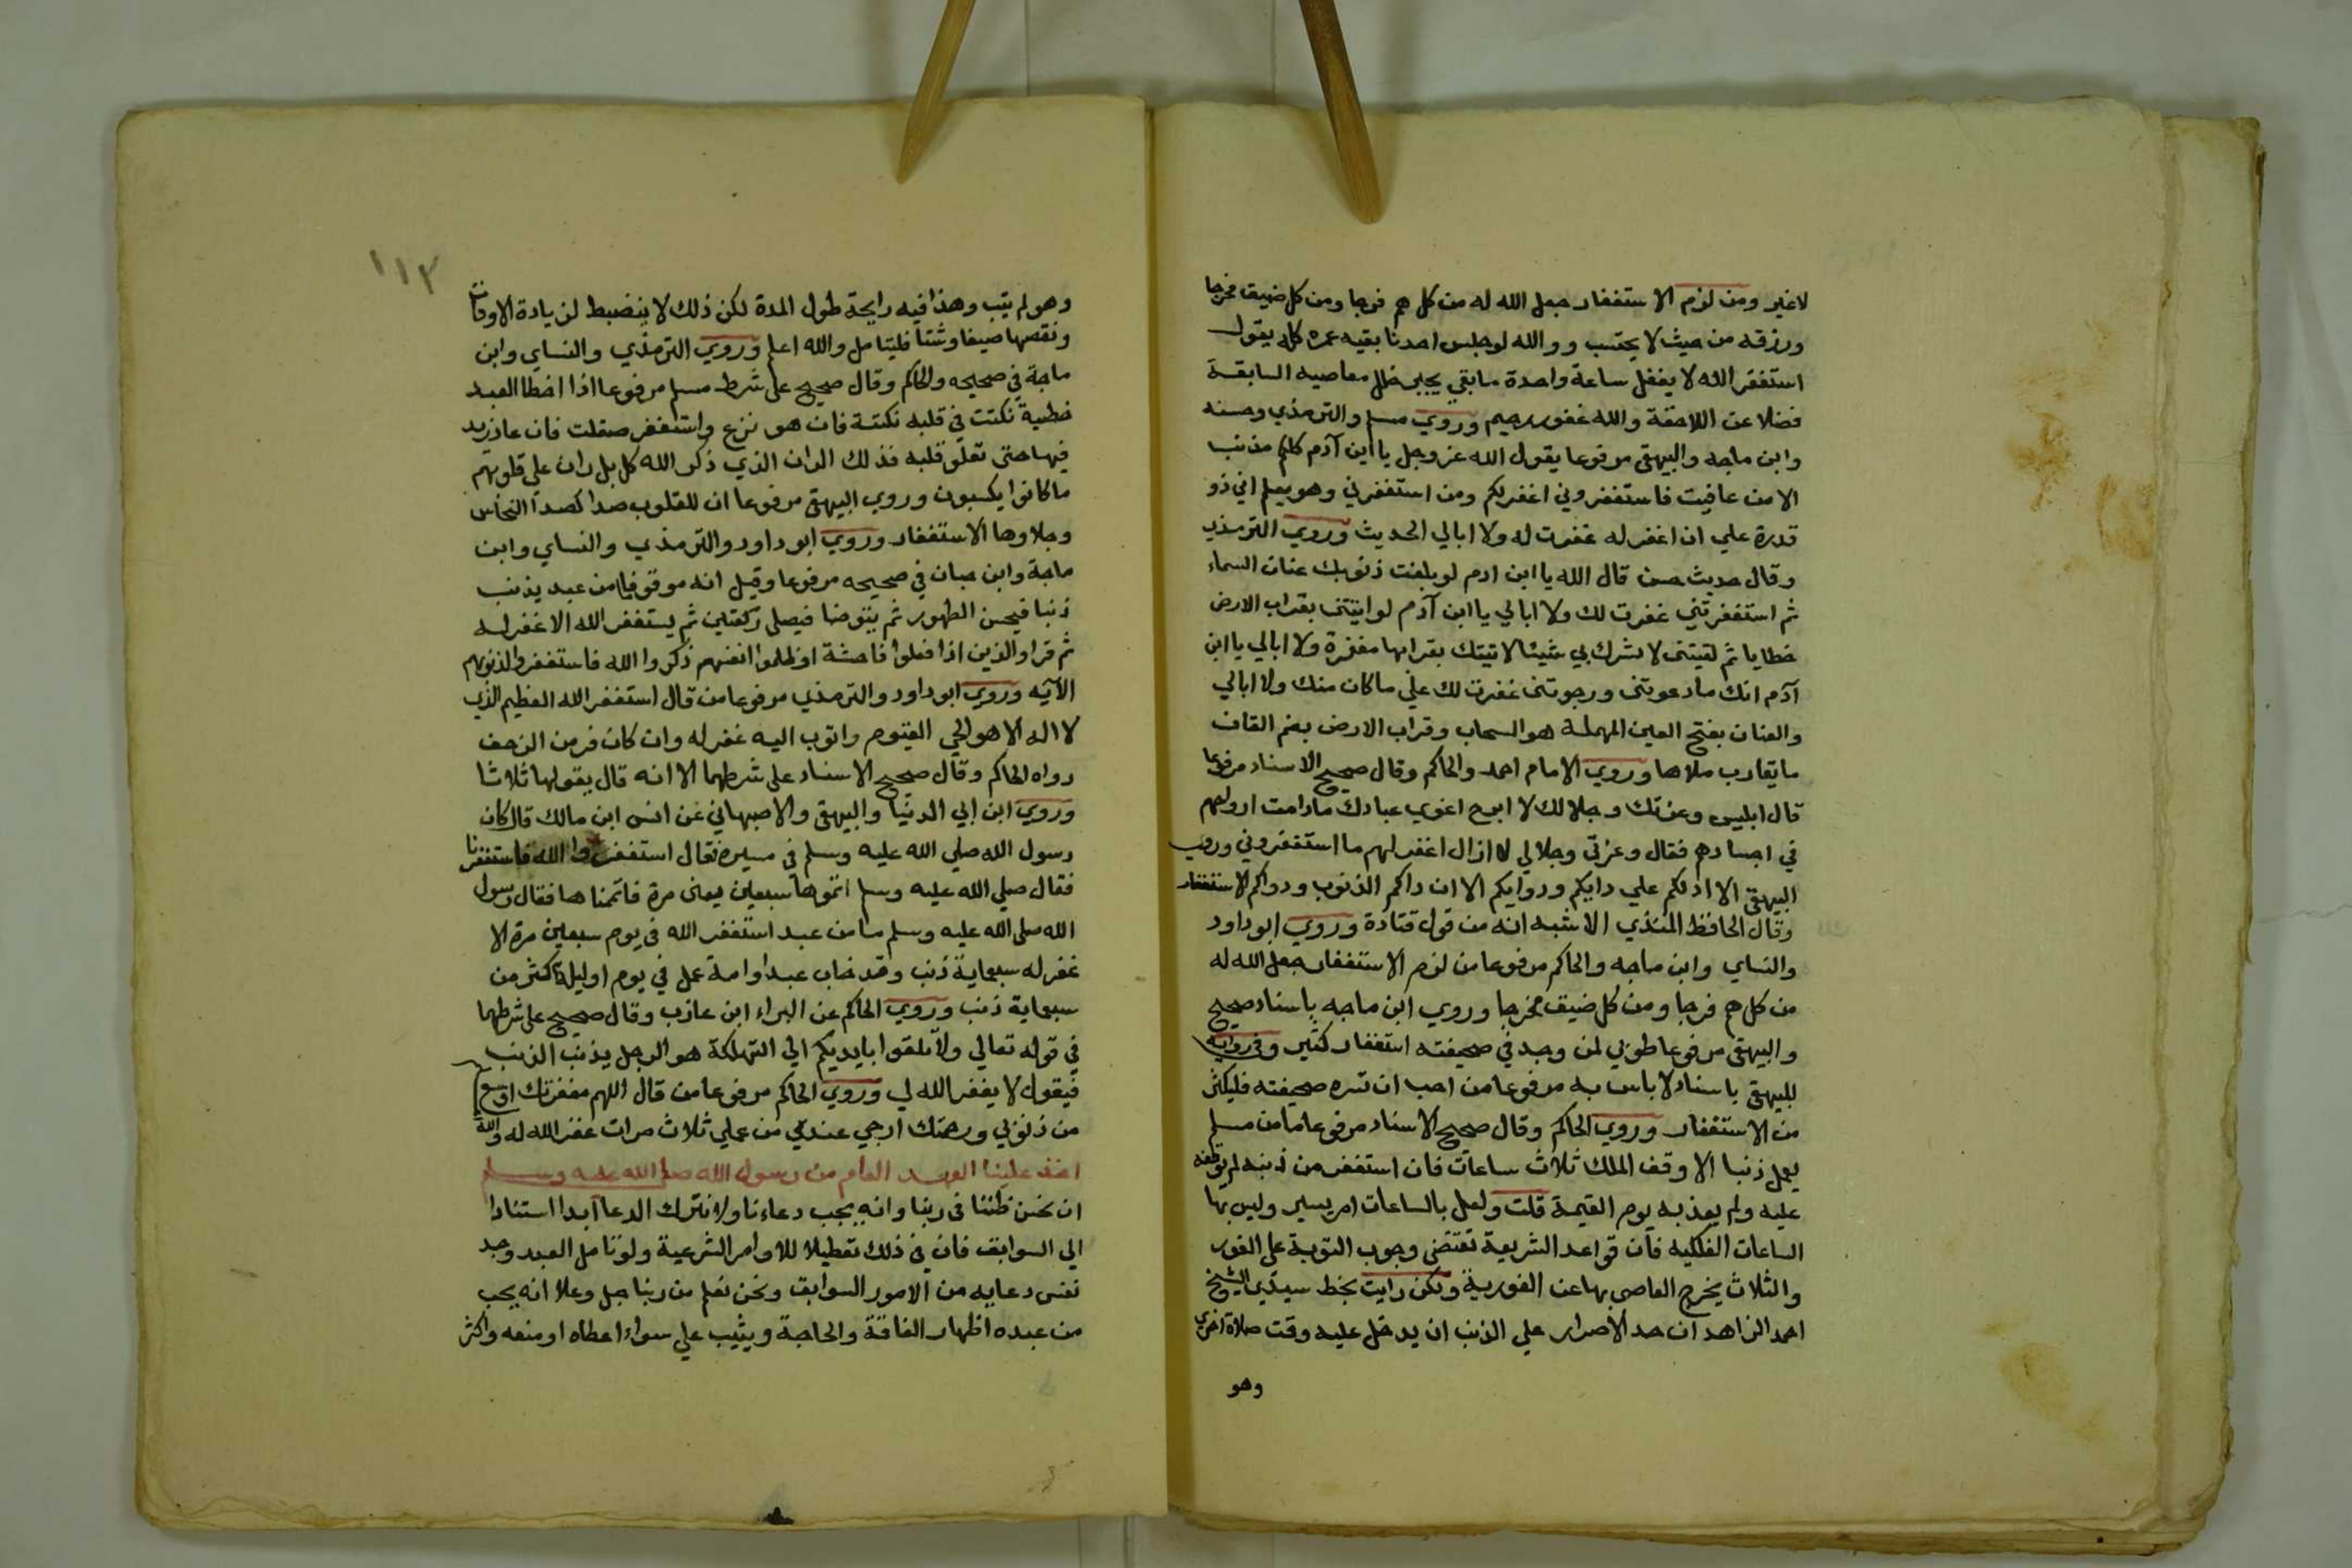 لاغير ومن لزم الاستغفار جعل الله له من كل هم فرجا ومن كل ضيق مخرجا
ورزقه من حيث لا يحتسب ووالله لو جلس احدنا بقيه عمره كله يقول
استغفر الله لا يغفل ساعة واحدة ما بقي يجبر خلل معاصيه السابقة
فضلا عن اللاحقة والله غفور رحيم وروي مسلم والترمذي وحسنه
وابن ماجه والبيهقي مرفوعا يقول الله عز وجل يا ابن آدم كلكم مذنب
الا من عافيت فاستغفروني اغفر لكم ومن استغفرني وهو يعلم اني ذو
قدرة علي ان اغفر له غفرت له ولا ابالي الحديث وروي الترمذي
وقال حديث حسن قال الله يا ابن ادم لو بلغت ذنوبك عنان السماء
ثم استغفرتني غفرت لك ولا ابالي يا ابن آدم لو اتيتني بقراب الارض
خطايا ثم لقيتني لا تشرك بي شيئا لاتيتك بقرابها مغفرة ولا ابالي يا ابن
آدم انك ما دعوتني ورجوتني غفرت لك علي ما كان منك ولا ابالي
والعنان بفتح العين المهملة هو السحاب وقراب الارض بضم القاف
ما يقارب ملاها وروي الامام احمد والحاكم وقال صحيح الاسناد مرفوعا
قال ابليس وعزتك وجلالك لا ابرح اغوي عبادك ما دامت ارواحهم
في اجسادهم فقال وعزتي وجلالي لا ازال اغفر لهم ما استغفروني وروي
البيهقي الا ادلكم علي دايكم ودوايكم الا ان داكم الذنوب ودواكم الاستغفار
وقال الحافظ المنذي الاشبه انه من قول قتادة وروي ابوداود
والنساي وابن ماجه والحاكم مرفوعا من لزم الاستغفار جعل الله له
من كل هم فرجا ومن كل ضيق مخرجا وروي ابن ماجه باسناد صحيح
والبيهقي مرفوعا طوبي لمن وجد في صحيفته استغفار كثير وفي رواية
للبيهقي باسناد لا باس به مرفوعا من احب ان تسره صحيفته فليكثر
من الاستغفار وروي الحاكم وقال صحيح الاسناد مرفوعا ما من مسلم
يعمل ذنبا الا وقف الملك ثلاث ساعات فان استغفر من ذنبه لم يوقفه
عليه ولم يعذبه يوم القيمة قلت ولعل بالساعات امر يسير وليس بها
الساعات الفلكيه فان قواعد الشريعة تقتضي وجوب التوبة علي الفور
والثلاث يخرج العاصي بها عن الفورية ولكن رايت بخط سيدي الشيخ
احمد الزاهد ان حد الاصرار علي الذنب ان يدخل عليه وقت صلاة اخري
وهو
١١٣
وهو لم يتب وهذا فيه رايحة طول المدة لكن ذلك لا ينضبط لزيادة الاوقات
ونقصها صيفا وشتا فليتامل والله اعلم وروي الترمذي والنساي وابن
ماجة في صحيحه والحاكم وقال صحيح علي شرط مسلم مرفوعا اذا اخطا العبد
خطية نكتت في قلبه نكتة فان هو نزع واستغفر صقلت فان عاد زيد
فيها حتي تعلو قلبه فذلك الران الذي ذكر الله كل بل ران علي قلوبهم
ما كانوا يكسبون وروي البيهقي مرفوعا ان للقلوب صدا كصدا النحاس
وجلاوها الاستغفار وروي ابوداود والترمذي والنساي وابن
ماجة وابن حبان في صحيحه مرفوعا وقيل انه موقوف ما من عبد يذنب
ذنبا فيحسن الطهور ثم يتوضا فيصلي ركعتين ثم يستغفر الله الا غفر له
ثم قرا والذين اذا فعلوا فاحشة او ظلموا انفسهم ذكروا الله فاستغفروا لذنوبهم
الآيه وروي ابوداود والترمذي مرفوعا من قال استغفر الله العظيم الذي
لا اله الا هو الحي القيوم واتوب اليه غفر له وان كان فر من الزحف
رواه الحاكم وقال صحيح الاسناد علي شرطهما الا انه قال يقولها ثلاثا
وروي ابن ابي الدنيا والبيهقي والاصبهاني عن انس ابن مالك قال كان
رسول الله صلي الله عليه وسلم في مسيره فقال استغفروا الله فاستغفرنا
فقال صلي الله عليه وسلم اتموها سبعين يعني مرة فاتمناها فقال رسول
الله صلي الله عليه وسلم ما من عبد استغفر الله في يوم سبعين مرة الا
غفر له سبعماية ذنب وقد خاب عبد او امة عمل في يوم او ليلة اكثر من
سبعماية ذنب وروي الحاكم عن البراء ابن عازب وقال صحيح علي شرطهما
في قوله تعالي ولا تلقوا بايديكم الي التهلكة هو الرجل يذنب الذنب
فيقول لا يغفر الله لي وروي الحاكم مرفوعا من قال اللهم مغفرتك اوسع
من ذنوبي ورحمتك ارجي عندي من عملي ثلاث مرات غفر الله له والله
اخذ علينا العهد العام من رسول الله صلي الله عليه وسلم
ان نحسن ظننا في ربنا وانه يجب دعاءنا ولا نترك الدعا آبدا استنادا
الي السوابق فان في ذلك تعطيلا للاوامر الشرعية ولو تامل العبد وجد
نفس دعايه من الامور السوابق ونحن نعلم من ربنا جل وعلا انه يحب
من عبده اظهار الفاقة والحاجة ويثيب علي سواء اعطاه او منعه واكثر